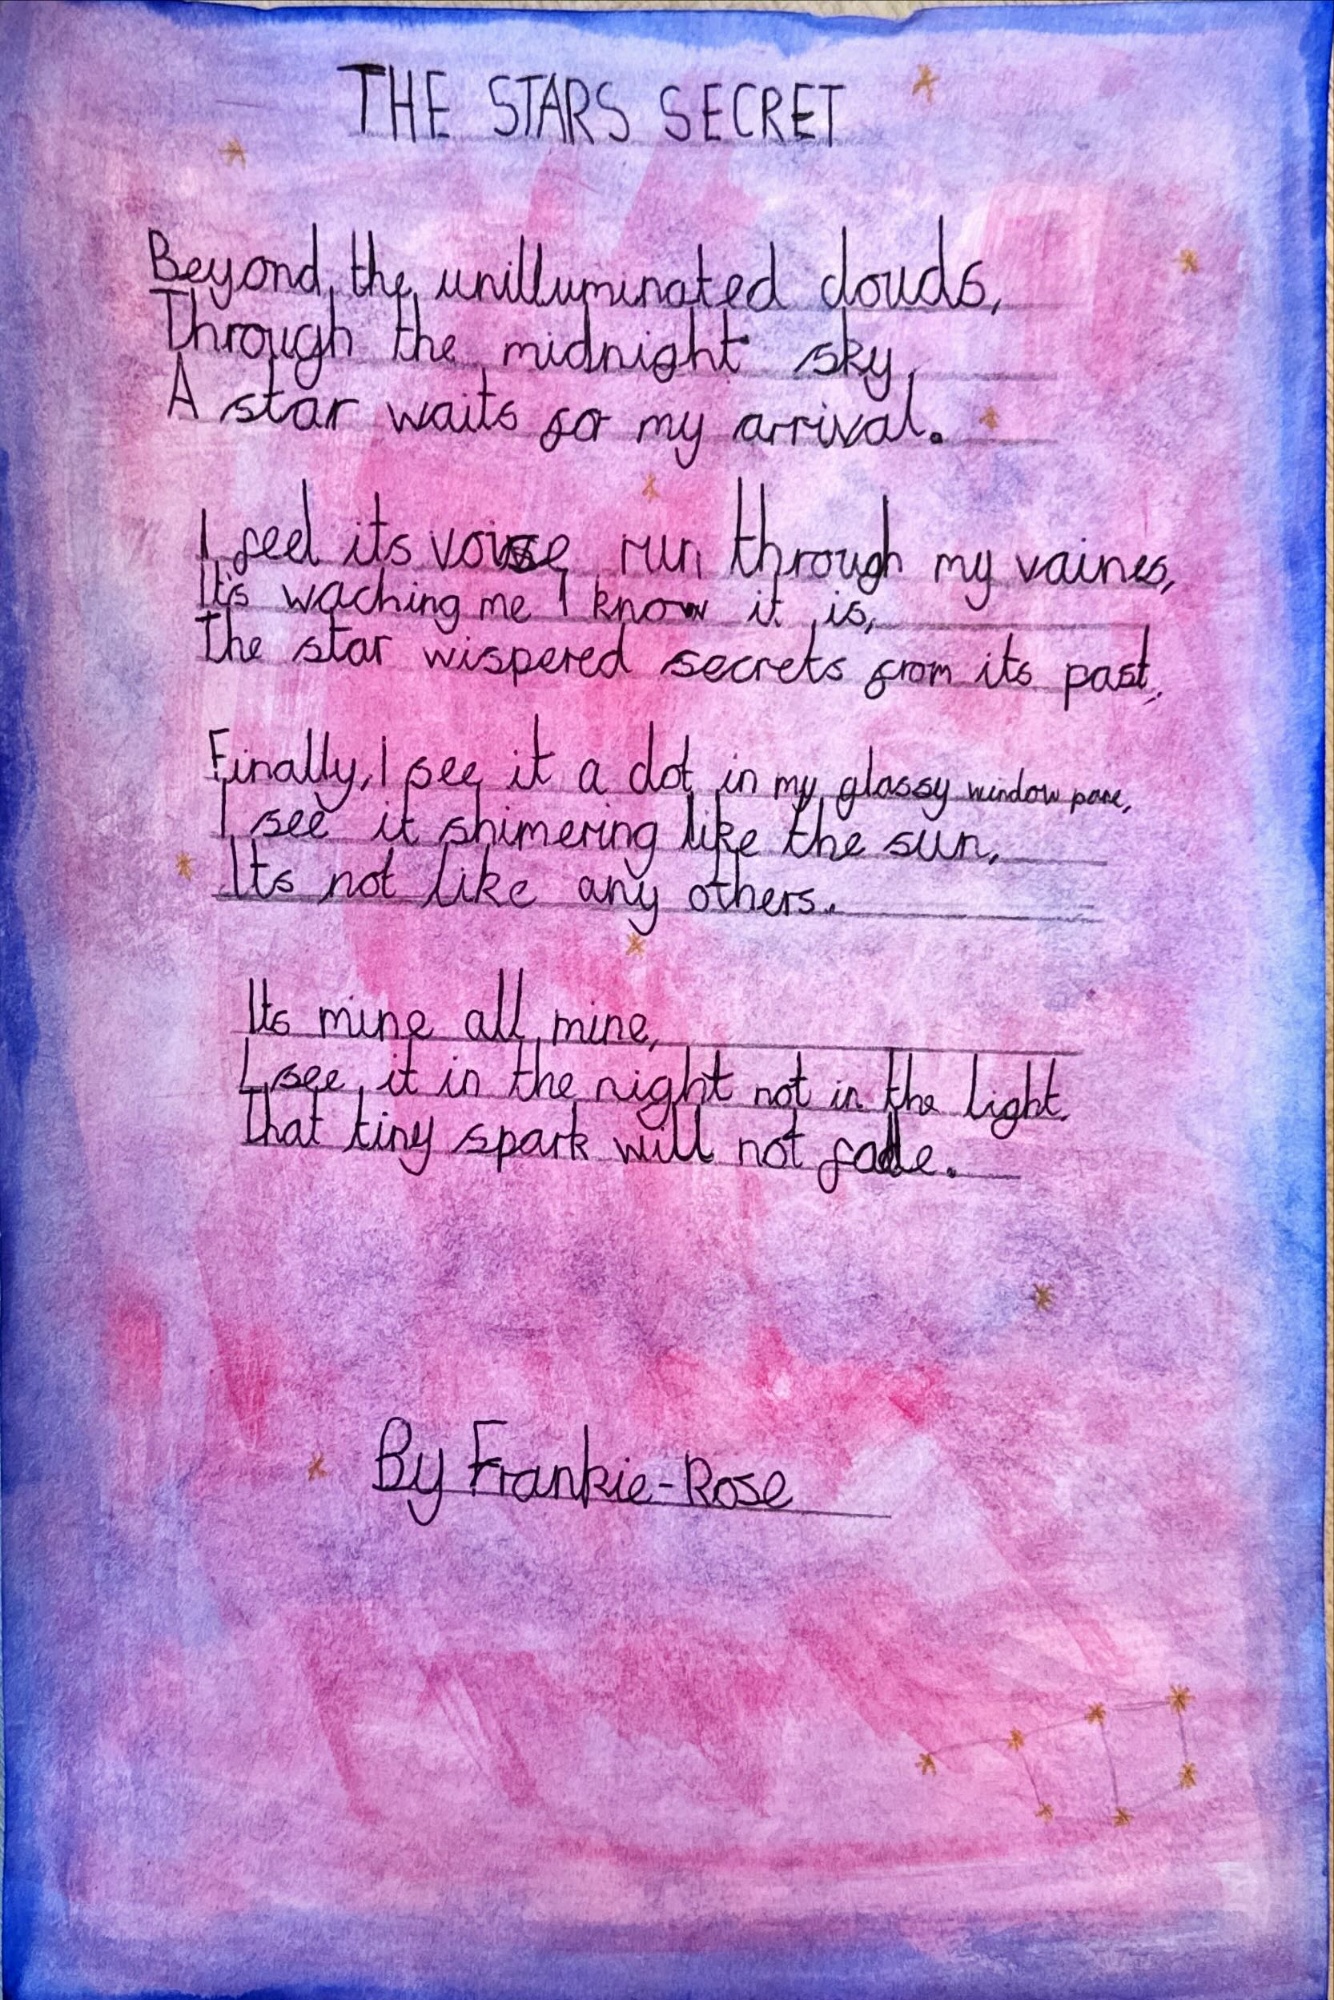 THE STARS SECRET
Beyond the unilluminated clouds,
Through the midnight sky,
A star waits for my arrival.
I feel its voise run through my vaines,
It's waching me I know it is,
the star wispered secrets from its past,
Finally, I see it a dot in my glassy window pane,
I see it shimering like the sun,
Its not like any others.
Its mine all mine,
I see it in the night not in the light.
that tiny spark will not fade.
By Frankie-Rose